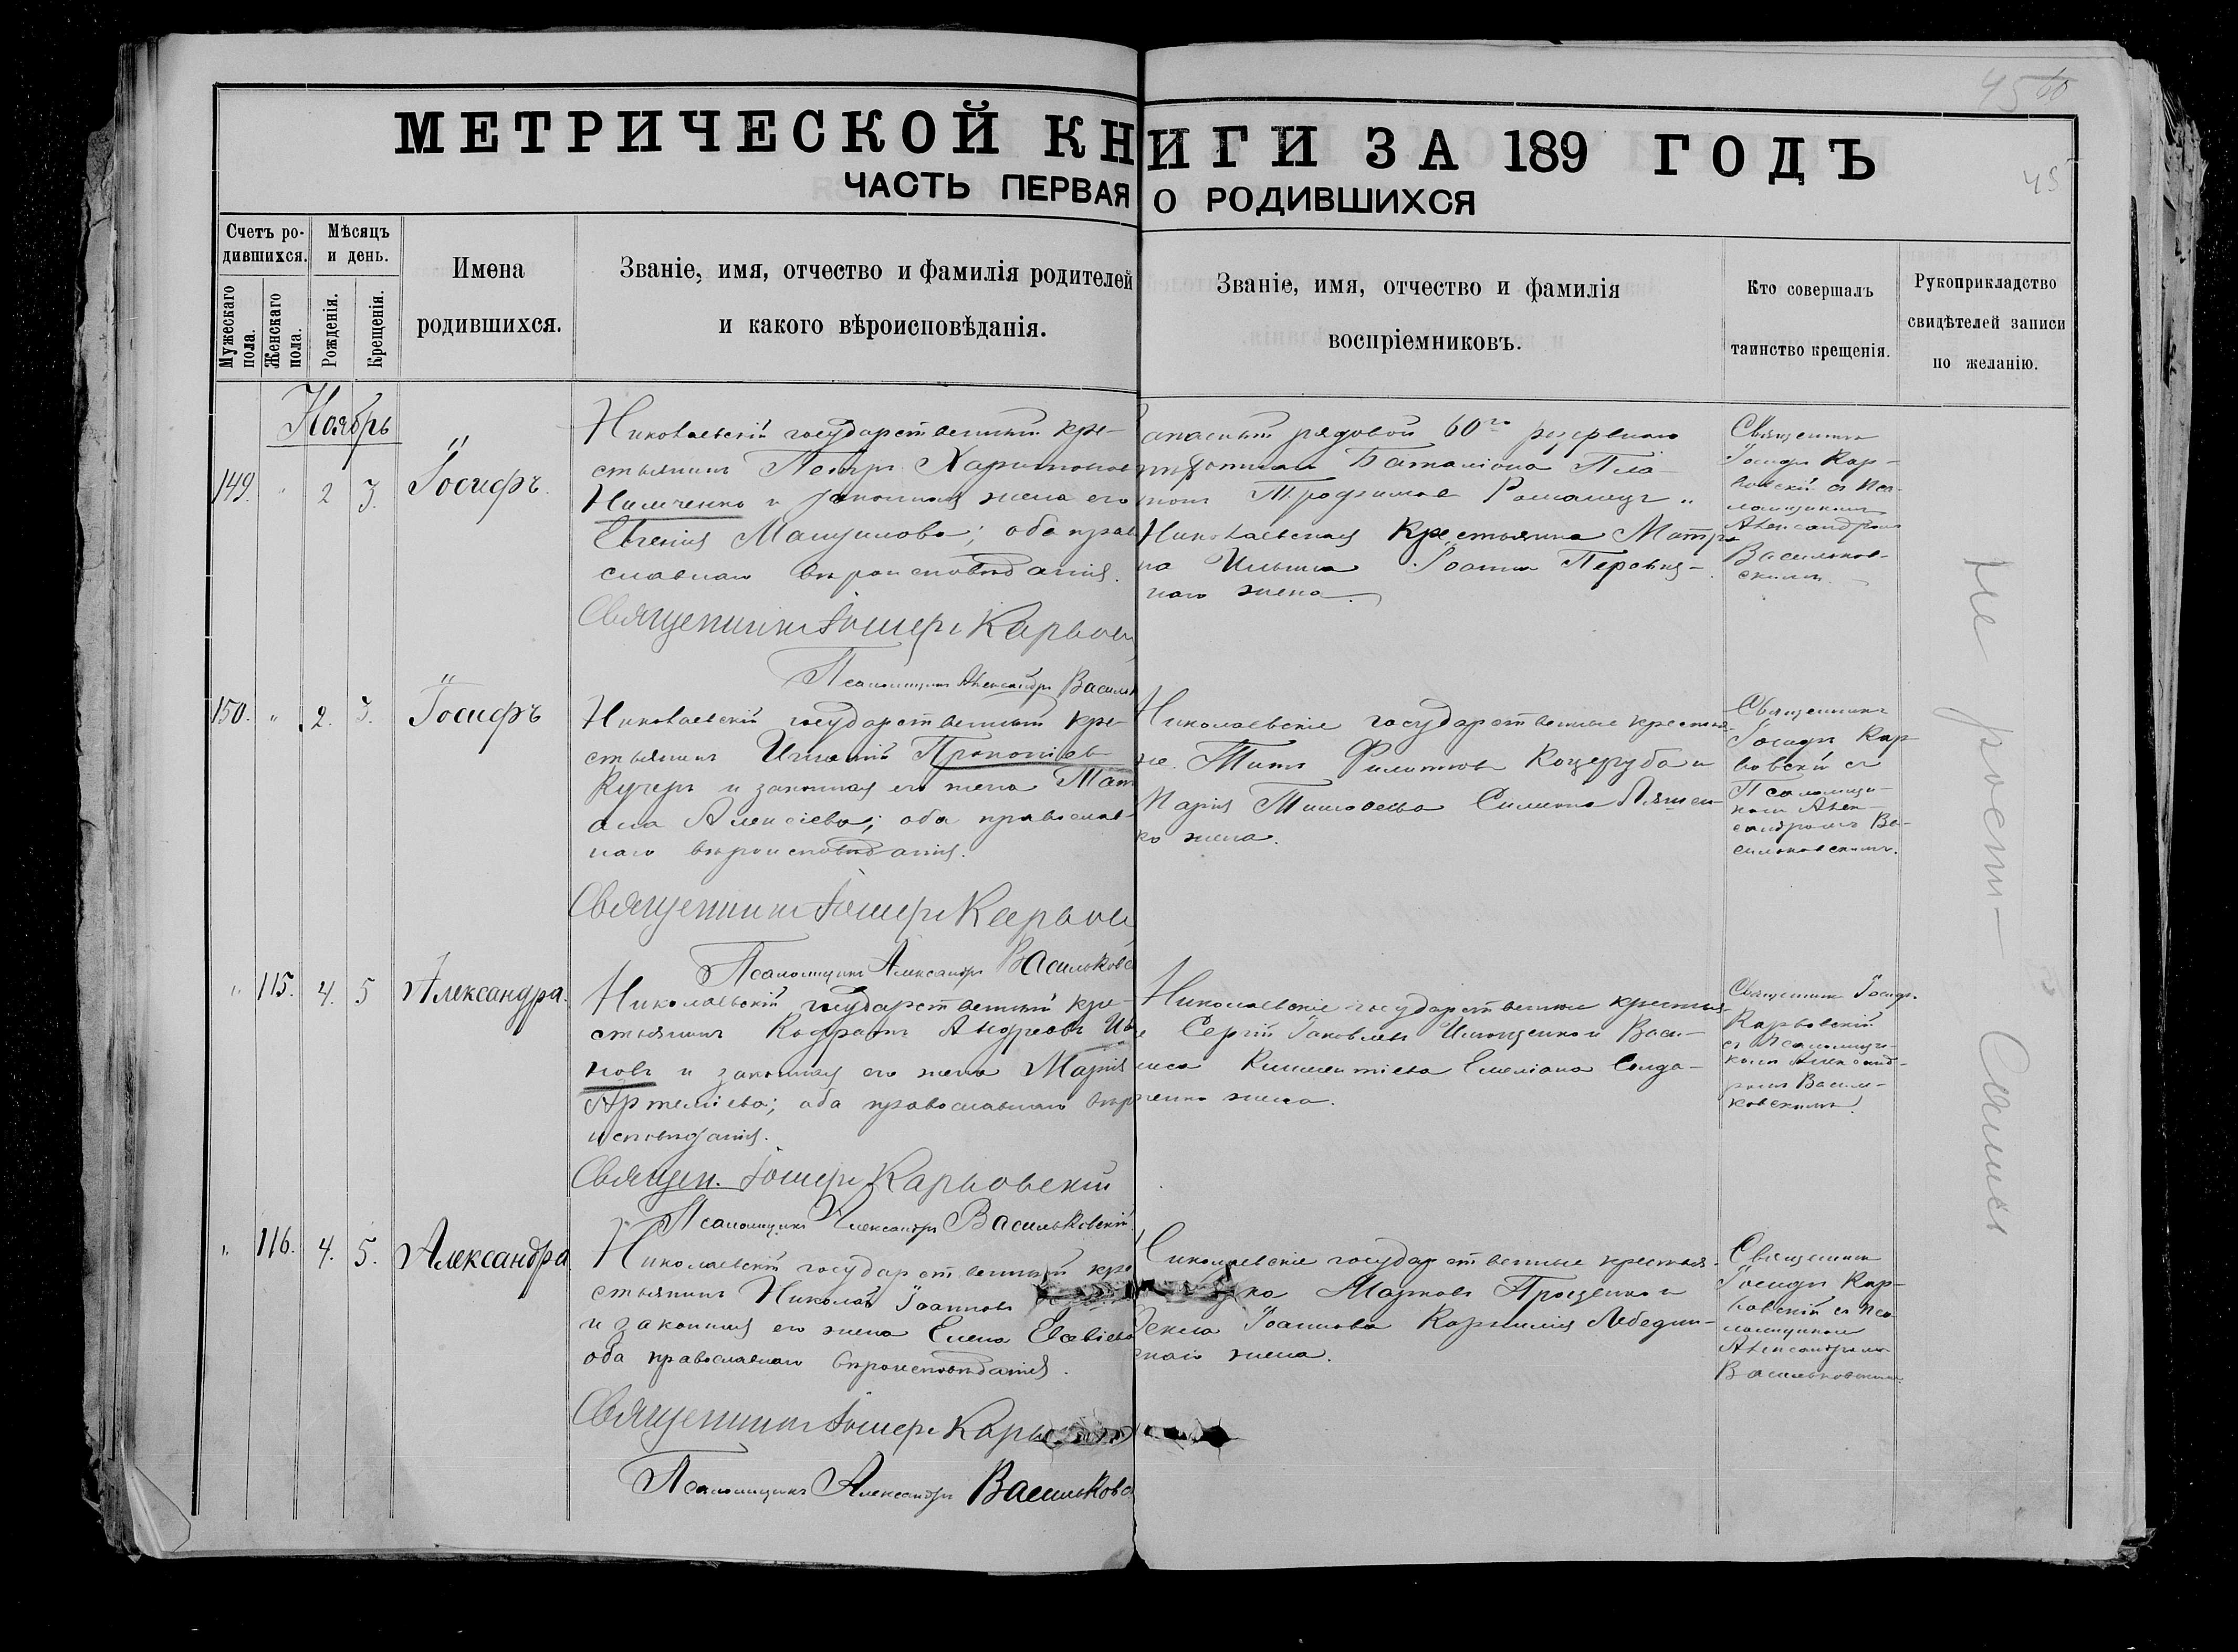 45
МЕТРИЧЕСКОЙ КНИГИ ЗА 189 ГОДЪ
45
ЧАСТЬ ПЕРВАЯ О РОДИВШИХСЯ
Счетъ родившихся.
Мужескаго пола.
Женскаго пола.
Мѣсяцъ и день.
Рожденія.
Крещенія.
Имена
родившихся.
Званіе, имя, отчество и фамилія родителей
и какого вѣроисповѣданія.
Званіе, имя, отчество и фамилія
воспріемниковъ.
Кто совершалъ
таинство крещенія.
Рукоприкладство
свидѣтелей записи
по желанію.
Ноябрь
149. " 2 3. Іосифъ.
Николаевскій государственный кре-
стьянинъ Петръ Харитоновъ
и законная жена его
Евгенія; оба право
славнаго вѣроисповѣданія.
Священникъ Іосифъ Карьов
Псаломщикъ Александръ Василь
запасный рядовой 60го резервнаго
Баталіона Пла-
тонъ Трофимовъ
Николаевская Крестьянка Матро
на Ильина Іоанна
наго жена.
Священникъ
Іосифъ Карь-
овскій съ Пса-
ломщикомъ
Александромъ
Васильков-
скимъ.
150. " 2. 3. Іосифъ
Николаевскій государственный кре-
стьянинъ Игнатій Прокопіевъ
Кучеръ и законная его жена
Алексіева; оба православ-
наго вѣроисповѣданія.
Священникъ Іосифъ Карьов
Псаломщикъ Александръ Васильковс
Николаевскіе государственные крестья-
не Титъ Филиповъ Коцегуба и
Марія Тимофеева
ко жена.
Священникъ
Іосифъ Карь-
овскій съ
Псаломщи-
комъ Алек-
сандромъ Ва-
сильковскимъ.
" 115. 4. 5 Александра.
Николаевскій государственный кре-
стьянинъ Кодратъ Андреевъ Ива
новъ и законная его жена Марія
Артеміева; оба православнаго вѣро
исповѣданія.
Священ. Іосифъ Карьовскій
Псаломщикъ Александръ Васильковскій.
Николаевскіе государственные крестья-
не Сергій Іаковлевъ Ильященко и Васи-
лиса Климентіева Емеліана Солда-
тенко жена.
Священникъ Іосифъ
Карьовскій
съ Псаломщи-
комъ Александ-
ромъ Василь-
ковскимъ.
" 116. 4. 5. Александра
Николаевскій государственный кре
стьянинъ Николай Іоанновъ
и законная его жена Елена Евсевіева
оба православнаго вѣроисповѣданія.
Священникъ Іосифъ Карьо
Псаломщикъ Александръ Васильковс
Николаевскіе государственные крестья-
ко Марковъ Проценко и
Іоаннова Корнилія Лебедин-
скаго жена.
Священникъ
Іосифъ Карь-
овскій съ Пса-
ломщикомъ
Александромъ
Васильковскимъ